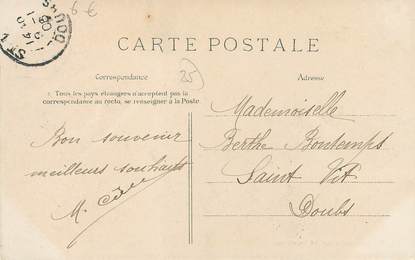 6 €
DOUBS
CARTE POSTALE
Correspondance
25
Adresse
Tous les pays étrangers n'acceptent pas la
correspondance au recto, se renseigner à la Poste
Bon souvenir
meilleurs souhaits
M.
Mademoiselle
Berthe Bontemps
Saint Vit
Doubs